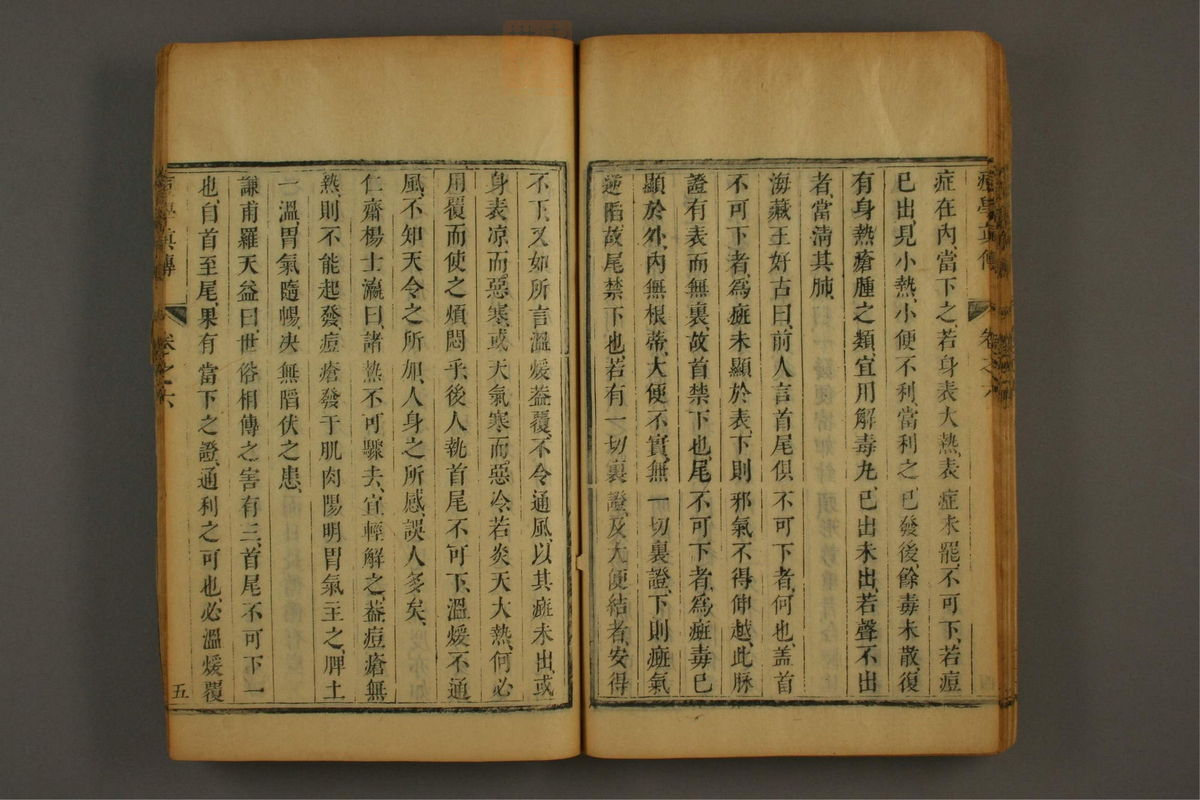 痘學真傳 卷之六
症在內當下之若身表大熱表症未罷不可下若痘
已出見小熱小便不利當利之已發後餘毒未散復
有身熱瘡腫之類宜用解毒丸已出未出若聲不出
者當清其肺
海藏王好古曰前人言首尾俱不可下者何也盖首
不可下者為癍未顯於表下則邪氣不得伸越此脉
證有表而無裏故首禁下也尾不可下者為癍毒已
顯於外內無根蒂大便不實無一切裏證下則癍氣
逆陷故尾禁下也若有一切裏證及大便結者安得
不下又如所言溫煖葢覆不令通風以其癍未出或
身表凉而惡寒或天氣寒而惡冷若炎天大熱何必
用覆而使之煩悶乎後人執首尾不可下溫煖不通
風不知天令之所加人身之所感誤人多矣
仁齋楊士瀛曰諸熱不可驟去宜輕解之葢痘瘡無
熱則不能起發痘瘡發于肌肉陽明胃氣主之脾土
一溫胃氣隨暢决無陷伏之患
謙甫羅天益曰世俗相傳之害有三首尾不可下一
也自首至尾果有當下之證通利之可也必溫煖覆
痘學真傳 卷之六 五